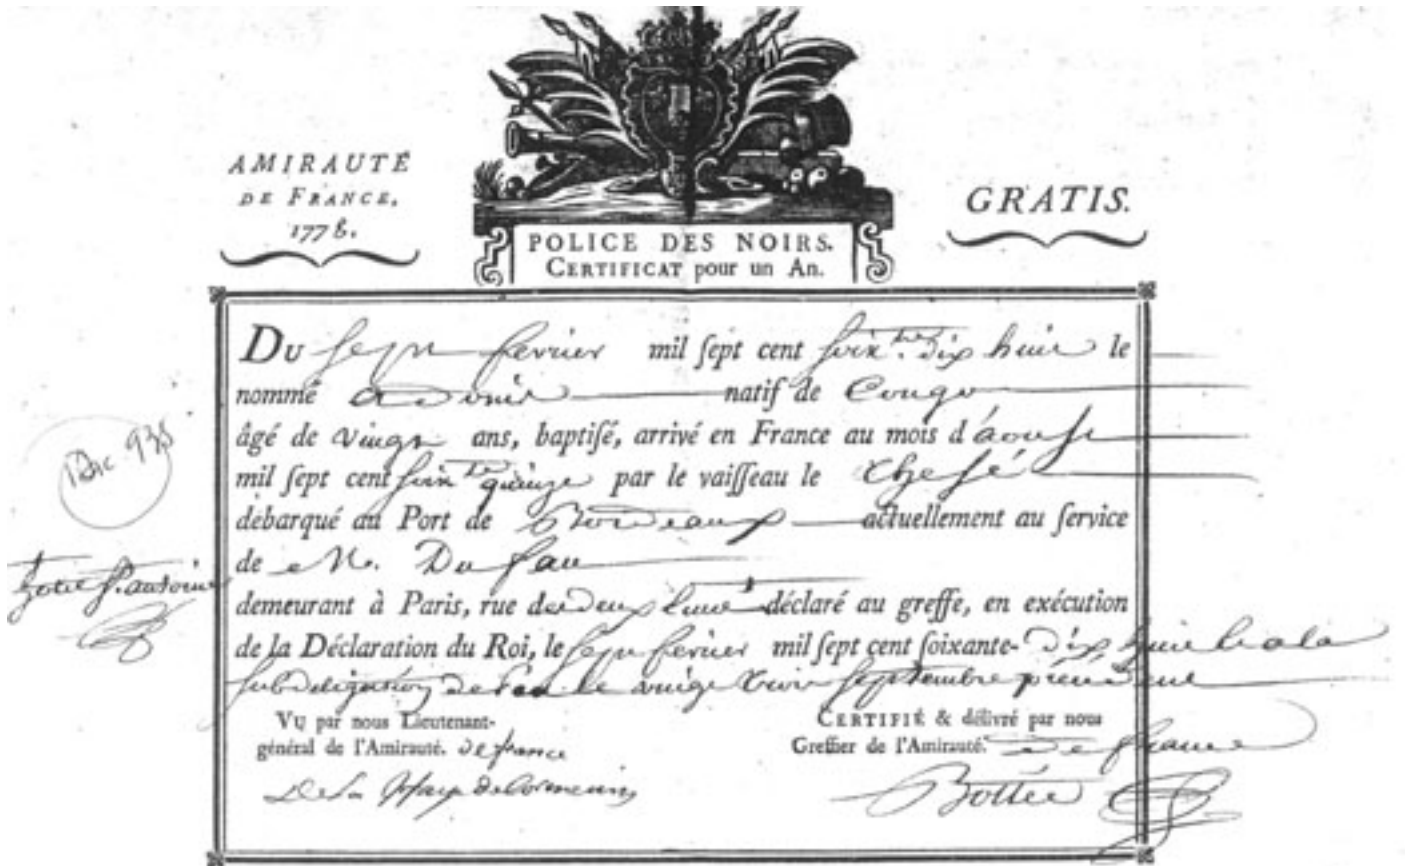 AMIRAUTÉ
DE FRANCE,
1778.
POLICE DES NOIRS.
CERTIFICAT pour un An.
GRATIS.
DU sept fevrier mil ſept cent ſoix.te dix huit le
nommé Adonis natif de Congo
âgé de vingt ans, baptiſé, arrivé en France au mois d'aouſt
mil ſept cent ſoix.te quinze par le vaiſſeau le
débarqué au Port de Bordeaux actuellement au ſervice
de M. Dufau
demeurant à Paris, rue des deux déclaré au greffe, en exécution
de la Déclaration du Roi, le ſept fevrier mil ſept cent ſoixante- dix huit et a la
ſubdelegation de le vingt trois ſeptembre précédent
VU par nous Lieutenant-
général de l'Amirauté. de france
CERTIFIÉ & délivré par nous
Greffier de l'Amirauté. de france
De la
Bottée